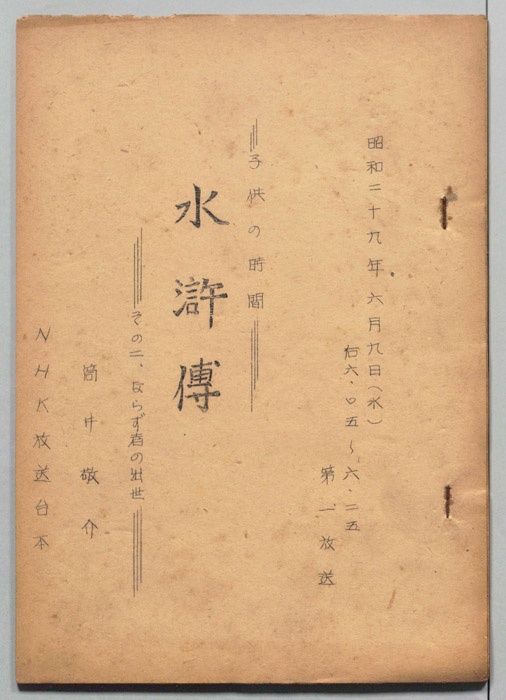 昭和二十九年六月九日(水)
后六・〇五~六・二五
第一放送
子供の時間
水滸傳
その二、ならず者の出世
筒井敬介
NHK放送台本